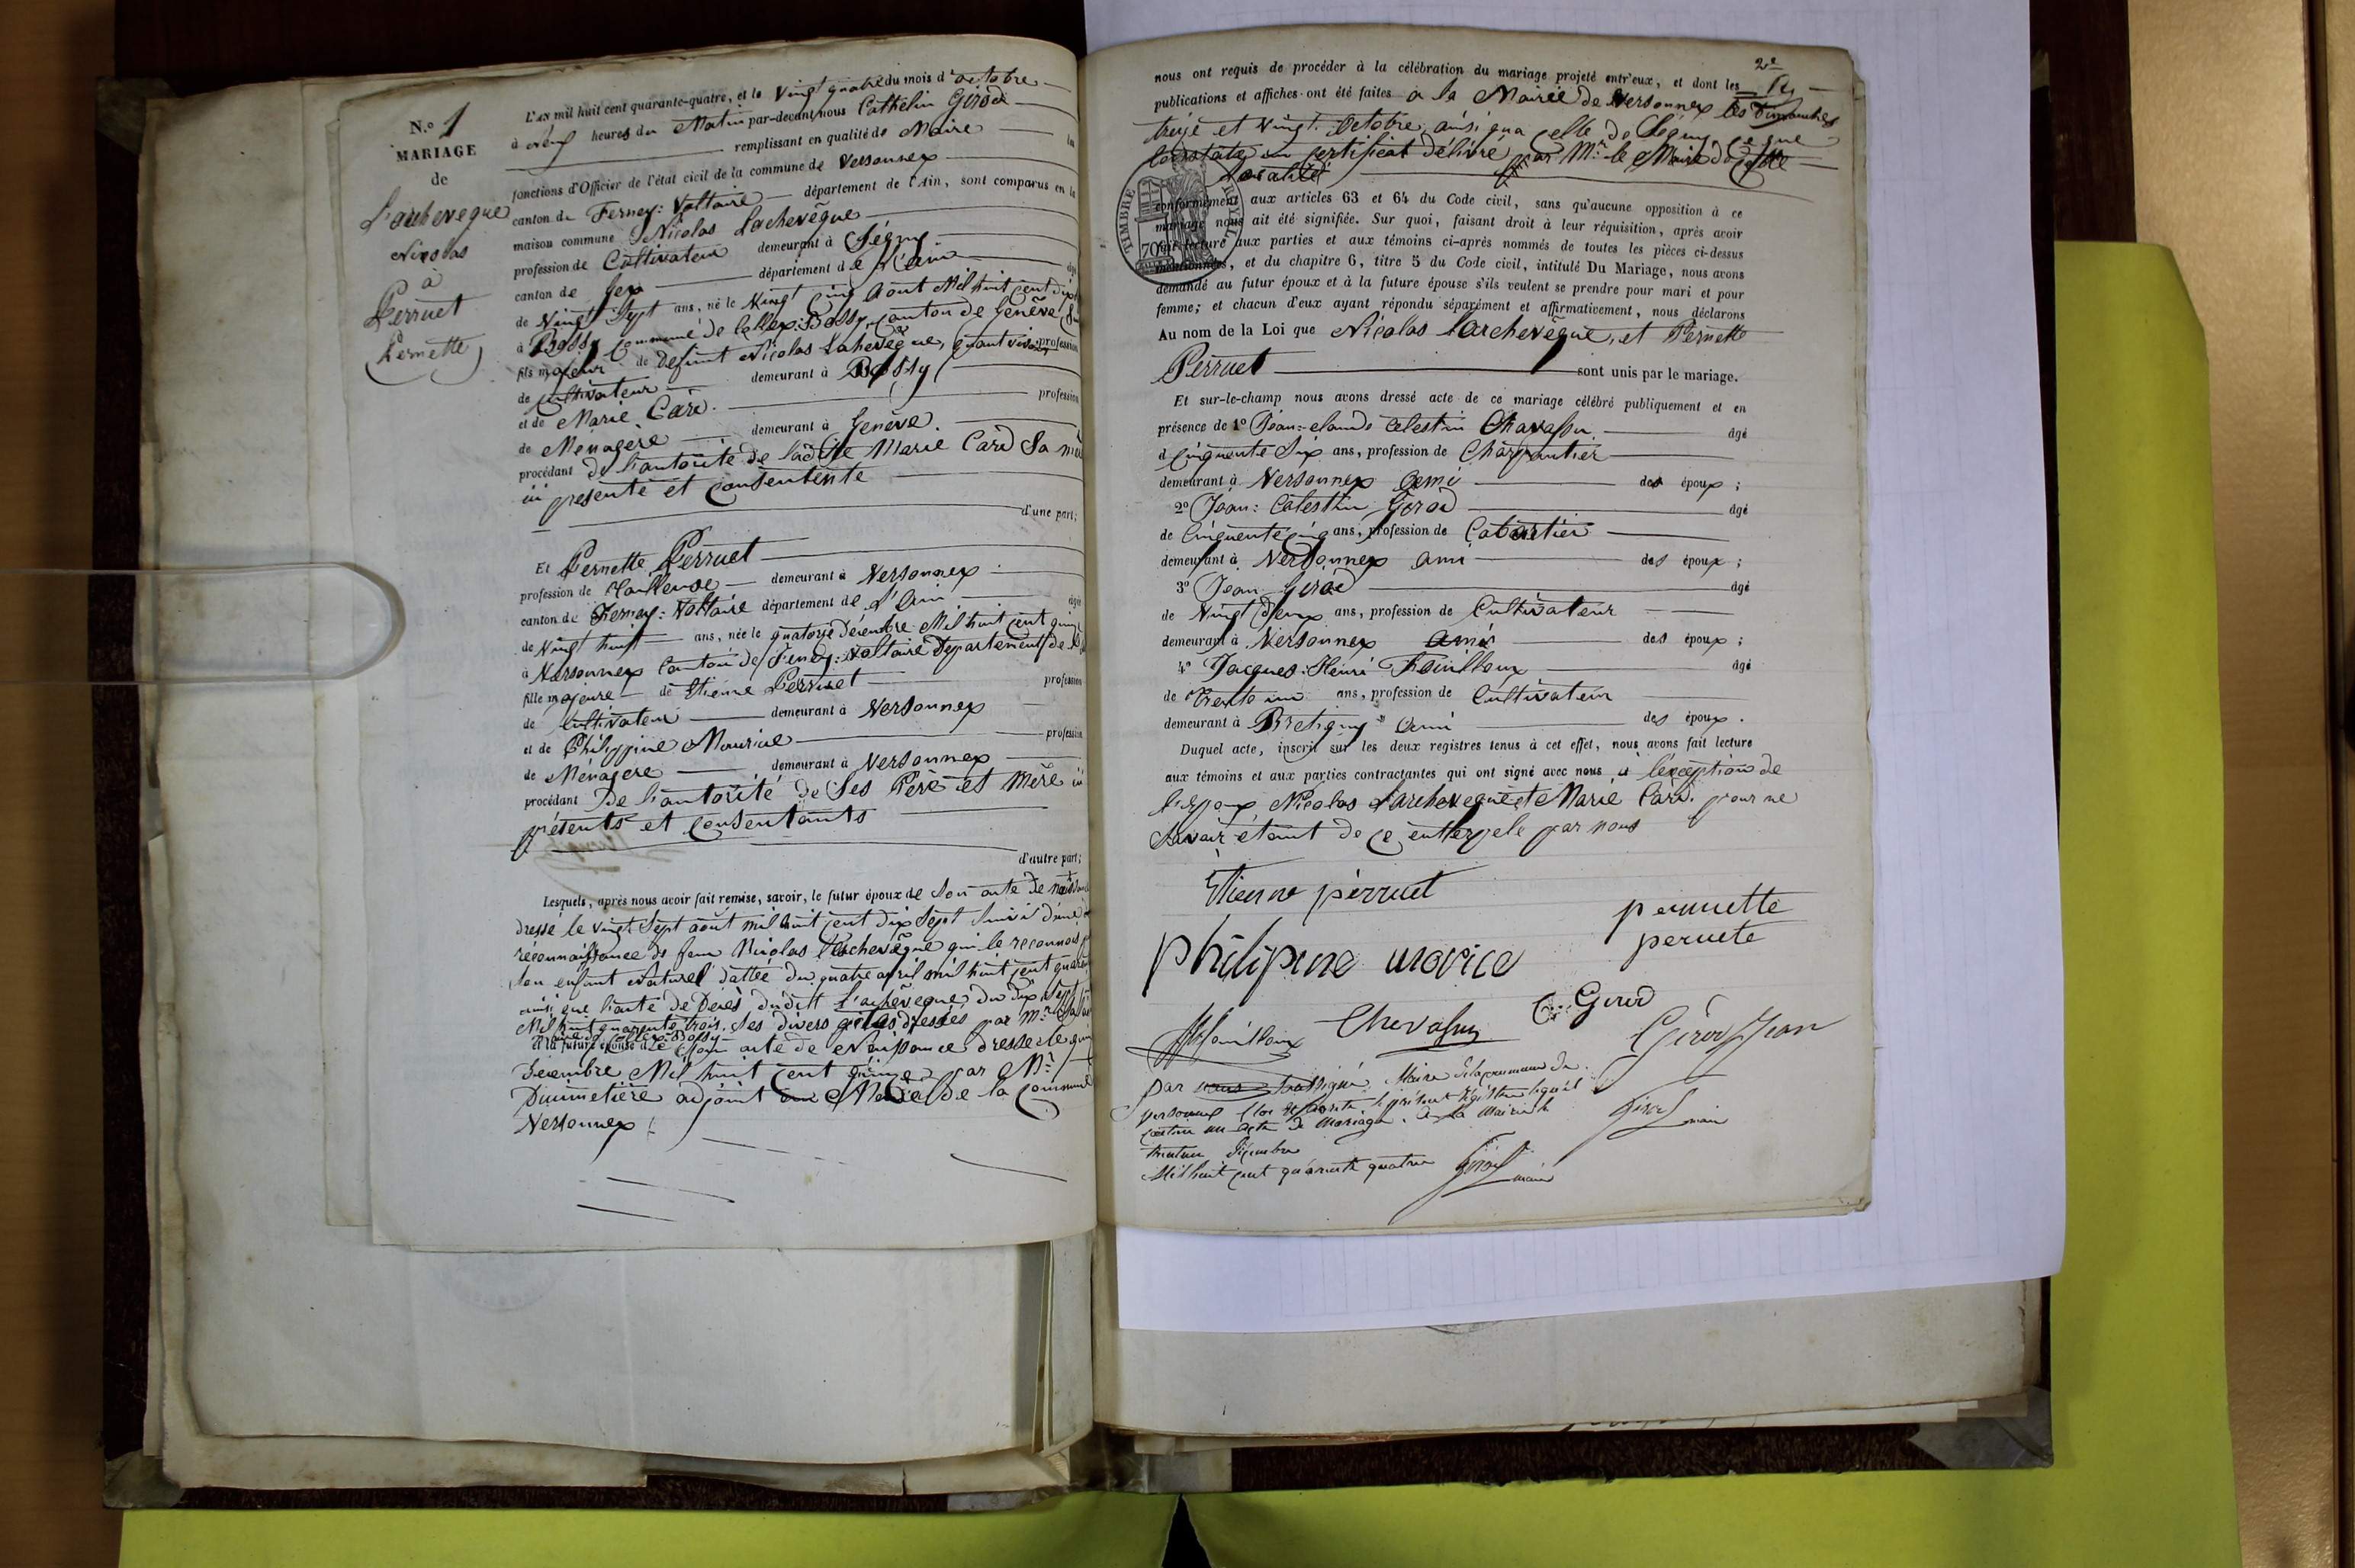 N.º 1
MARIAGE
de
Larcheveque
Nicolas
à
Perruet
Pernette
L'AN mil huit cent quarante-quatre, et le Vingt quatre du mois d'octobre
à neuf heures du Matin par-devant nous Cathelin Girod
remplissant en qualité de Maire
fonctions d'Officier de l'état civil de la commune de Versonnex
canton de Ferney: Voltaire département de l'Ain, sont comparus en la
maison commune Nicolas Lachevêque
profession de Cultivateur demeurant à Ségny
canton de Gex département de l'ain
de Vingt Sept ans, né le Vingt Cinq Aout Mil huit cent dix
à Bossy Commune de Collex: Bossy, canton de Genêve
fils majeur de defunt Nicolas Lachevêque, quant vivant profession
de cultivateur demeurant à Bossy
et de Marie Card profession
de Ménagère demeurant à Genève
procédant de l'autorité de ladite Marie Card Sa
ici presente et Consentente
d'une part;
Et Pernette Perruet
profession de Tailleuse demeurant à Versonnex
canton de Ferney: Voltaire département de l'Ain agée
de Vingt huit ans, née le quatorze Décembre Mil huit cent
à Versonnex Canton de Ferney: Voltaire Département de
fille majeure de Etiene Perruet profession
de cultivateur demeurant à Versonnex
et de Philippine Maurice profession
de Ménagere demeurant à Versonnex
procédant De l'autorité de Ses Père et Mère
présents et Consentants
d'autre part;
Lesquels, après nous avoir fait remise, savoir, le futur époux de Son acte de
dressé le vingt Sept aout mil huit cent dix Sept Suivi d'une
réconnaissance de feu Nicolas l'archevêque qui le reconnois
Son enfant Naturel dattée du quatre avril mil huit cent
ainsi que l'acte de Decès dudit L'achêveque du dix Sept
Mil huit quarante trois. Ses divers actes dressés par Mr
et la future épouse de Son acte de Naissance dressé le
Décembre Mil huit Cent quinze par Mr
adjoint Maire de la Commune
Versonnex
2e
nous ont requis de procéder à la célébration du mariage projeté entr'eux, et dont les
publications et affiches ont été faites à la Mairie de Versonnex les Dimanches
treize et Vingt Octobre, ainsi qua celle de Ségny, ce que
Constate un Certificat délivré par Mr le Maire de cette
Localité
TIMBRE ROYAL
70
conformément aux articles 63 et 64 du Code civil, sans qu'aucune opposition à ce
mariage nous ait été signifiée. Sur quoi, faisant droit à leur réquisition, après avoir
fait lecture aux parties et aux témoins ci-après nommés de toutes les pièces ci-dessus
mentionnées, et du chapitre 6, titre 5 du Code civil, intitulé Du Mariage, nous avons
demandé au futur époux et à la future épouse s'ils veulent se prendre pour mari et pour
femme; et chacun d'eux ayant répondu séparément et affirmativement, nous déclarons
Au nom de la Loi que Nicolas Larchevêque, et Pernette
Perruet sont unis par le mariage.
Et sur-le-champ nous avons dressé acte de ce mariage célébré publiquement et en
présence de 1º Jean: claude Celestin Chavassu agé
d Cinquente Six ans, profession de Charpantier
demeurant à Versonnex Ami des époux;
2º Jean: Celestin Girod agé
de Cinquente cinq ans, profession de Cabartier
demeurant à Versonnex ami des époux;
3º Jean Girod agé
de Vingt deux ans, profession de Cultivateur
demeurant à Versonnex ami des époux;
4º Jacques: Henri Fouilloux agé
de Trente un ans, profession de Cultivateur
demeurant à Bretigny ami des époux.
Duquel acte, inscrit sur les deux registres tenus à cet effet, nous avons fait lecture
aux témoins et aux parties contractantes qui ont signé avec nous à l'éxception de
l'époux Nicolas Larcheveque et Marie Card. pour ne
Savoir étant de ce enterpelé par nous
Etienne pèrruet
pernnette
peruete
Philipine morice
Girod
Chevassu
Girod Jean
par nous soussigné, Maire de la commune de
Versonnex Clos et arrêté le présent registre lequel
contien un acte de Mariage. à la Mairie le
trentun Décembre
Mil huit cent quarante quatre
Girod maire
Girod maire